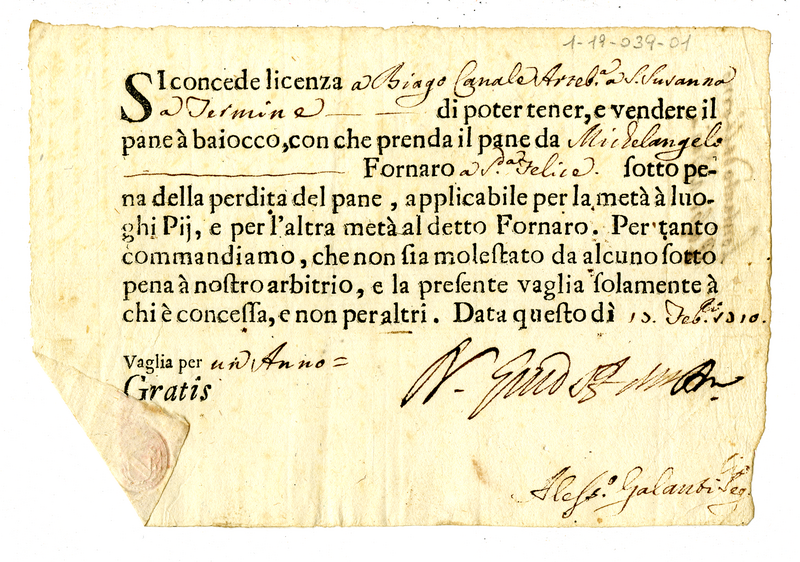 1-19-039-01
SI concede licenza a Biago Canale Arteb.ª a S. Susanna
a Termine di poter tener, e vendere il
pane à baiocco, con che prenda il pane da Michelangelo
Fornaro a S.ª Felice. sotto pe-
na della perdita del pane, applicabile per la metà à luo-
ghi Pij, e per l'altra metà al detto Fornaro. Per tanto
commandiamo, che non sia molestato da alcuno sotto
pena à nostro arbitrio, e la presente vaglia solamente à
chi è concessa, e non per altri. Data questo dì 13. Feb.º 1310.
Vaglia per un Anno =
Gratis
Aless.º Galanti Seg.